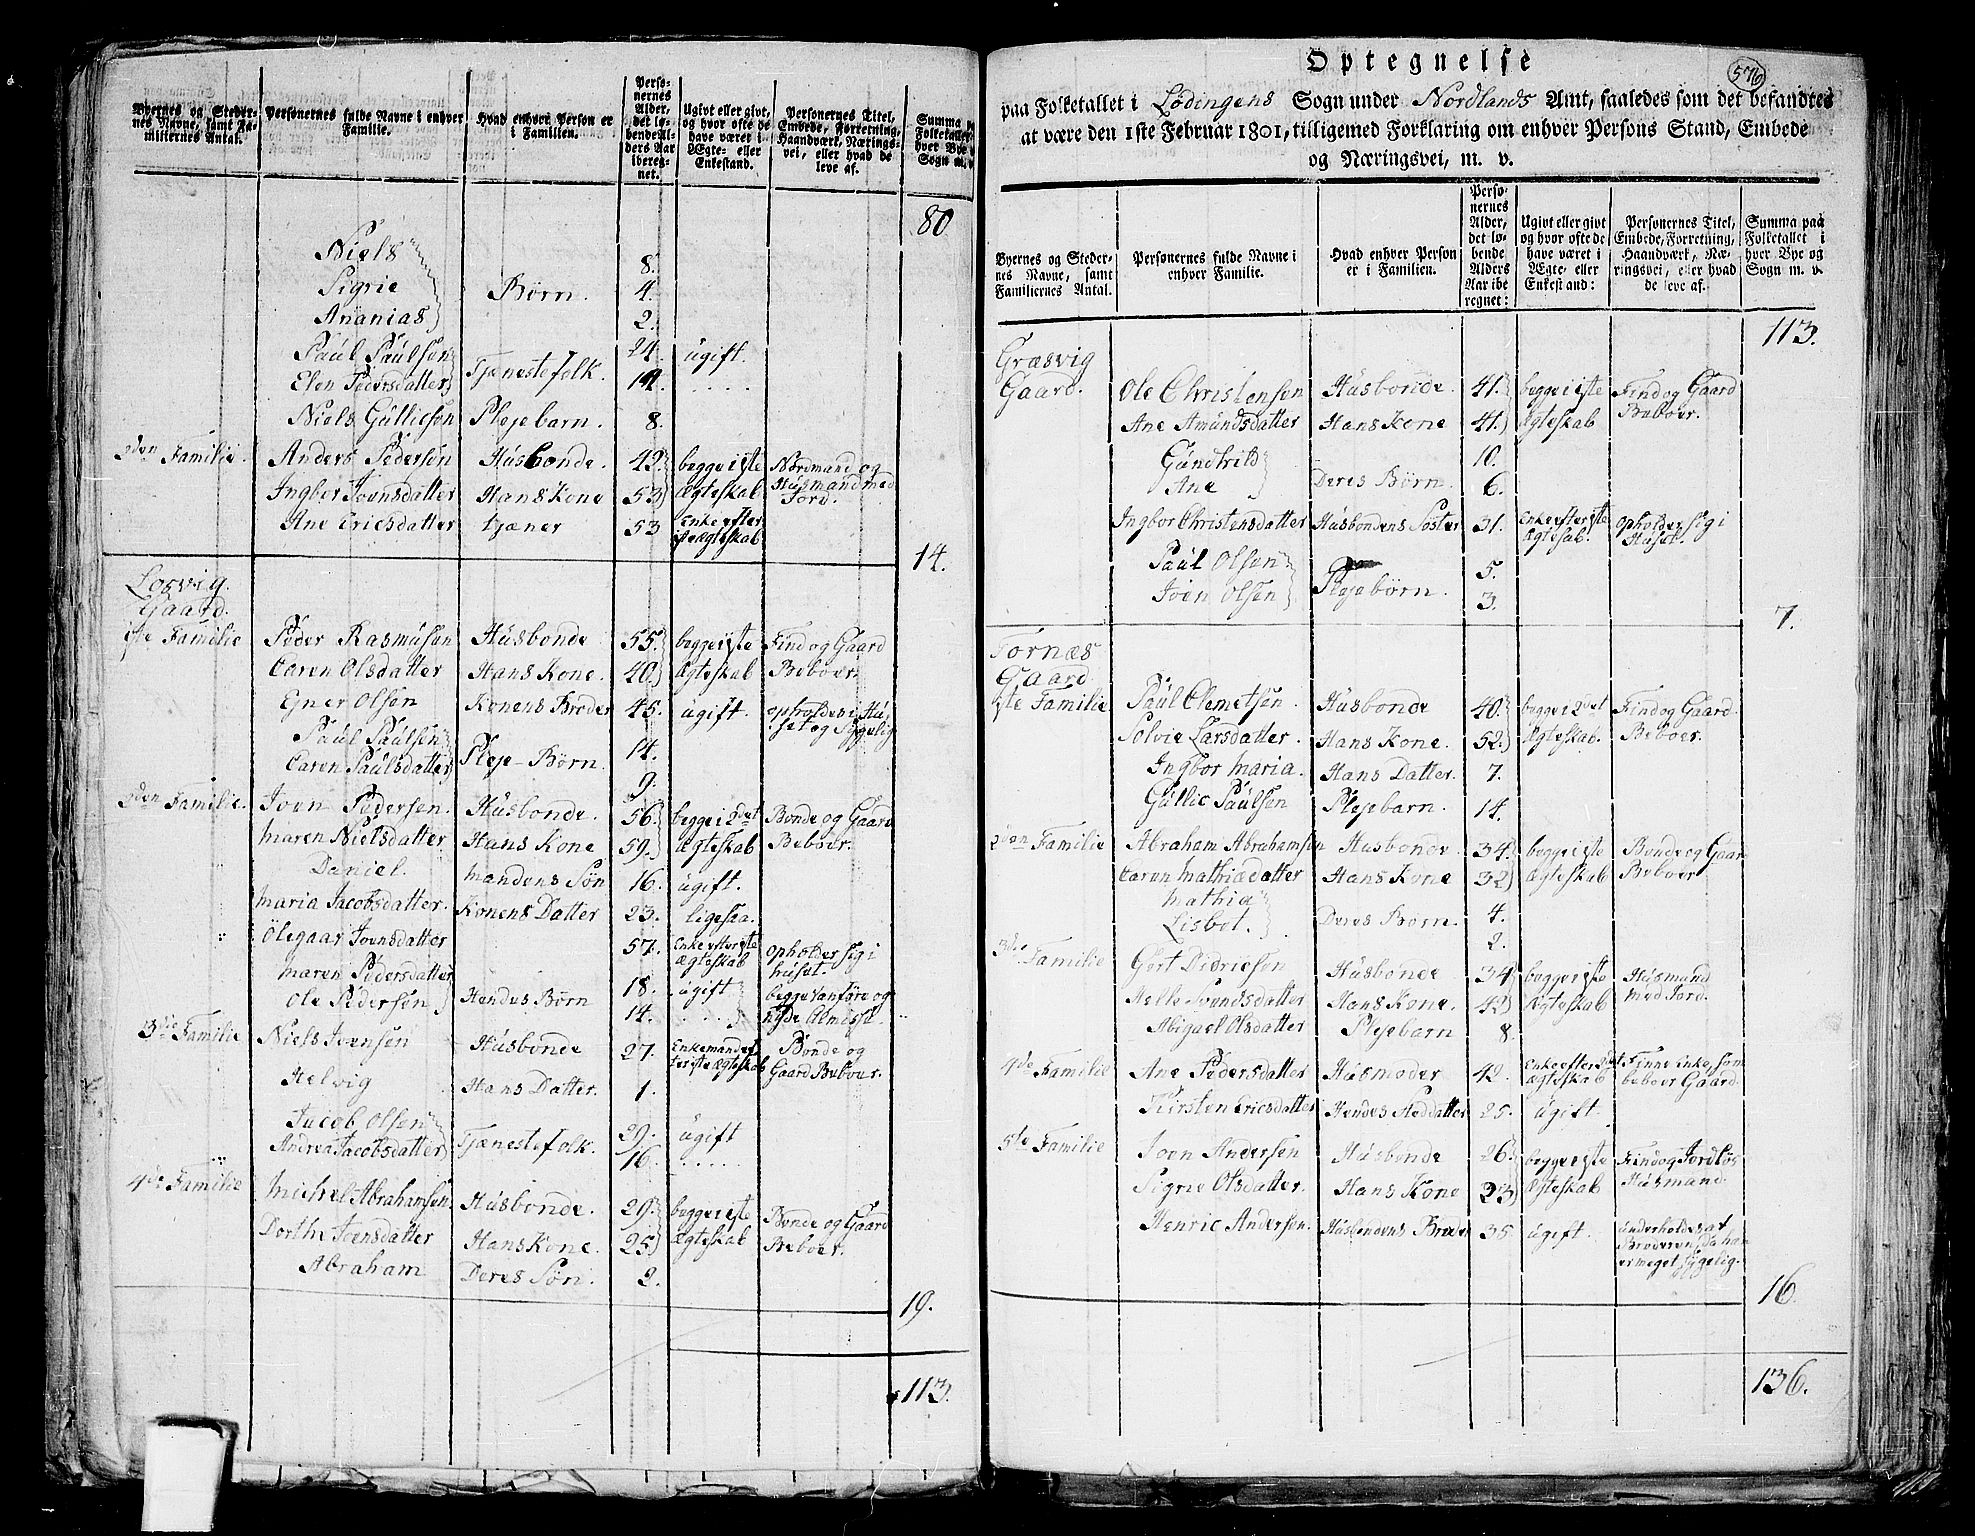 Byernes og Steder-
nes Navne, samt Fa-
miliernes Antal.
Personernes fulde Navne i enhver
Familie.
Hvad enhver Person er
i Familien.
Perso-
nernes
Alder,
det lø-
bende Al-
ders Aar
ibereg-
net.
Ugivt eller givt,
og hvor ofte de
have været i
Ægte- eller
Enkestand.
Personernes Titel,
Embede, Forretning,
Haandværk, Nærings-
vei, eller hvad de
leve af.
Summa
Folketallet
hver Bye
Sogn m.
80
Niels 8.
Sigrie Børn. 4.
Ananias 2.
Paul Paulsen Tjenestefolk. 24. ugift.
Elen Pedersdatter
Niels Gulliesen Plejebarn. 8.
2den Familie. Anders Pedersen Husbonde. 49. begge i 1ste Nordmand og
Ingbor Joensdatter Hans Kone 53 Ægteskab Husmand med
Jord.
Ane Ericsdatter tjæner 53 Enke efter
1ste Ægteskab
14.
Losvig
Gaard.
1ste Familie Peder Rasmusen Husbonde 55. begge i 1ste Find og Gaard
Caren Olsdatter Hans Kone. 40. Ægteskab Beboer.
Ejner Olsen Konens Broder 45. ugift. opholdes i Hu-
set og Sygelig
Paul Paulsen Pleje-Børn. 14.
Caren Paulsdatter 9.
2den Familie. Joen Pedersen. Husbonde. 56. begge i 2det Bonde og Gaard
Maren Nielsdatter Hans Kone 59. Ægteskab Beboer.
Daniel. Mandens Søn 16. ugift.
Maria Jacobsdatter. Konens Datter 23. ligesaa.
Olegaar Joensdatter 57. Enke efter 1ste opholder sig i
Ægteskab huset.
Maren Pedersdatter Hendes Børn 18. ugift begge Vanføre og
Ole Pedersen 14. nyde Almisse.
3die Familie Niels Joensen Husbonde 27. Enkemand ef- Bonde og
ter 1ste Ægteskab Gaard Beboer.
Helvig Hans Datter. 1.
Jacob Olsen Tjænestefolk. 29. ugift
Andrea Jacobsdatter 16.
4de Familie Michel Abrahamsen Husbonde. 29. begge i 1ste Bonde og Gaard
Dorthe Joensdatter Hans Kone. 25 Ægteskab Beboer.
Abraham Deres Søn. 2.
19.
113.
Optegnelse
576
paa Folketallet i Lødingens Sogn under Nordlands Amt, saaledes som det befandtes
at være den 1ste Februar 1801, tilligemed Forklaring om enhver Persons Stand, Embede
og Næringsvei, m. v.
Byernes og Steder-
nes Navne, samt
Familiernes Antal.
Personernes fulde Navne i
enhver Familie.
Hvad enhver Person
er i Familien.
Perso-
nernes
Alder,
det lø-
bende
Alders
Aar ibe
regnet:
Ugivt eller givt
og hvor ofte de
have været i
Ægte- eller
Enkestand:
Personernes Titel,
Embede, Forretning,
Haandværk, Næ-
ringsvei, eller hvad
de leve af.
Summa paa
Folketallet i
hver Bye og
Sogn m. v.
113.
Græsvig
Gaard. Ole Christensen Husbonde 41. begge i 1ste Find og Gaard
Ane Amundsdatter Hans Kone 41. Ægteskab Beboer.
10.
Ane Deres Børn. 6.
Ingbor Christensdatter Husbondens Søster 31. Enke efter 1ste opholder sig i
Ægtesab. Huset.
Paul Olsen Plejebørn. 5.
Joen Olsen 3.
7.
Tornæs
Gaard
1ste Familie Paul Clemetsen Husbonde 40. begge i 2det Find og Gaard
Solvie Larsdatter. Hans Kone. 52. Ægteskab. Beboer.
Ingbor Maria. Hans Datter. 7.
Gullic Paulsen Plejebarn. 14.
2den Familie Abraham Abrahamsen Husbonde 34. begge i 1ste Bonde og Gaar
Caren Mathiædatter Hans Kone 32 Ægteskab Beboer
Mathia Deres Børn. 4.
Lisbet. 2.
3die Familie Gert Didricsen Husbonde 34 begge i 1ste Husmand
Helle Svendsdatter Hans Kone. 42 Ægteskab med Jord.
Abigael Olsdatter Plejebarn 8.
4de Familie Ane Pedersdatter Husmoder 42. Enke efter 2det Finne Enke, som
Ægteskab beboer Gaard.
Kirsten Ericsdatter Hendes Steddatter 25. ugift.
5te Familie Joen Andersen Husbonde 26. begge i 1ste Find og Jordløs
Sigrie Olsdatter. Hans Kone 23 Ægteskab Husmand.
Henric Andersen. Husbondens Broder 35. ugift. underholdes af
Broderen, da han
er meget sygelig.
16.
136.